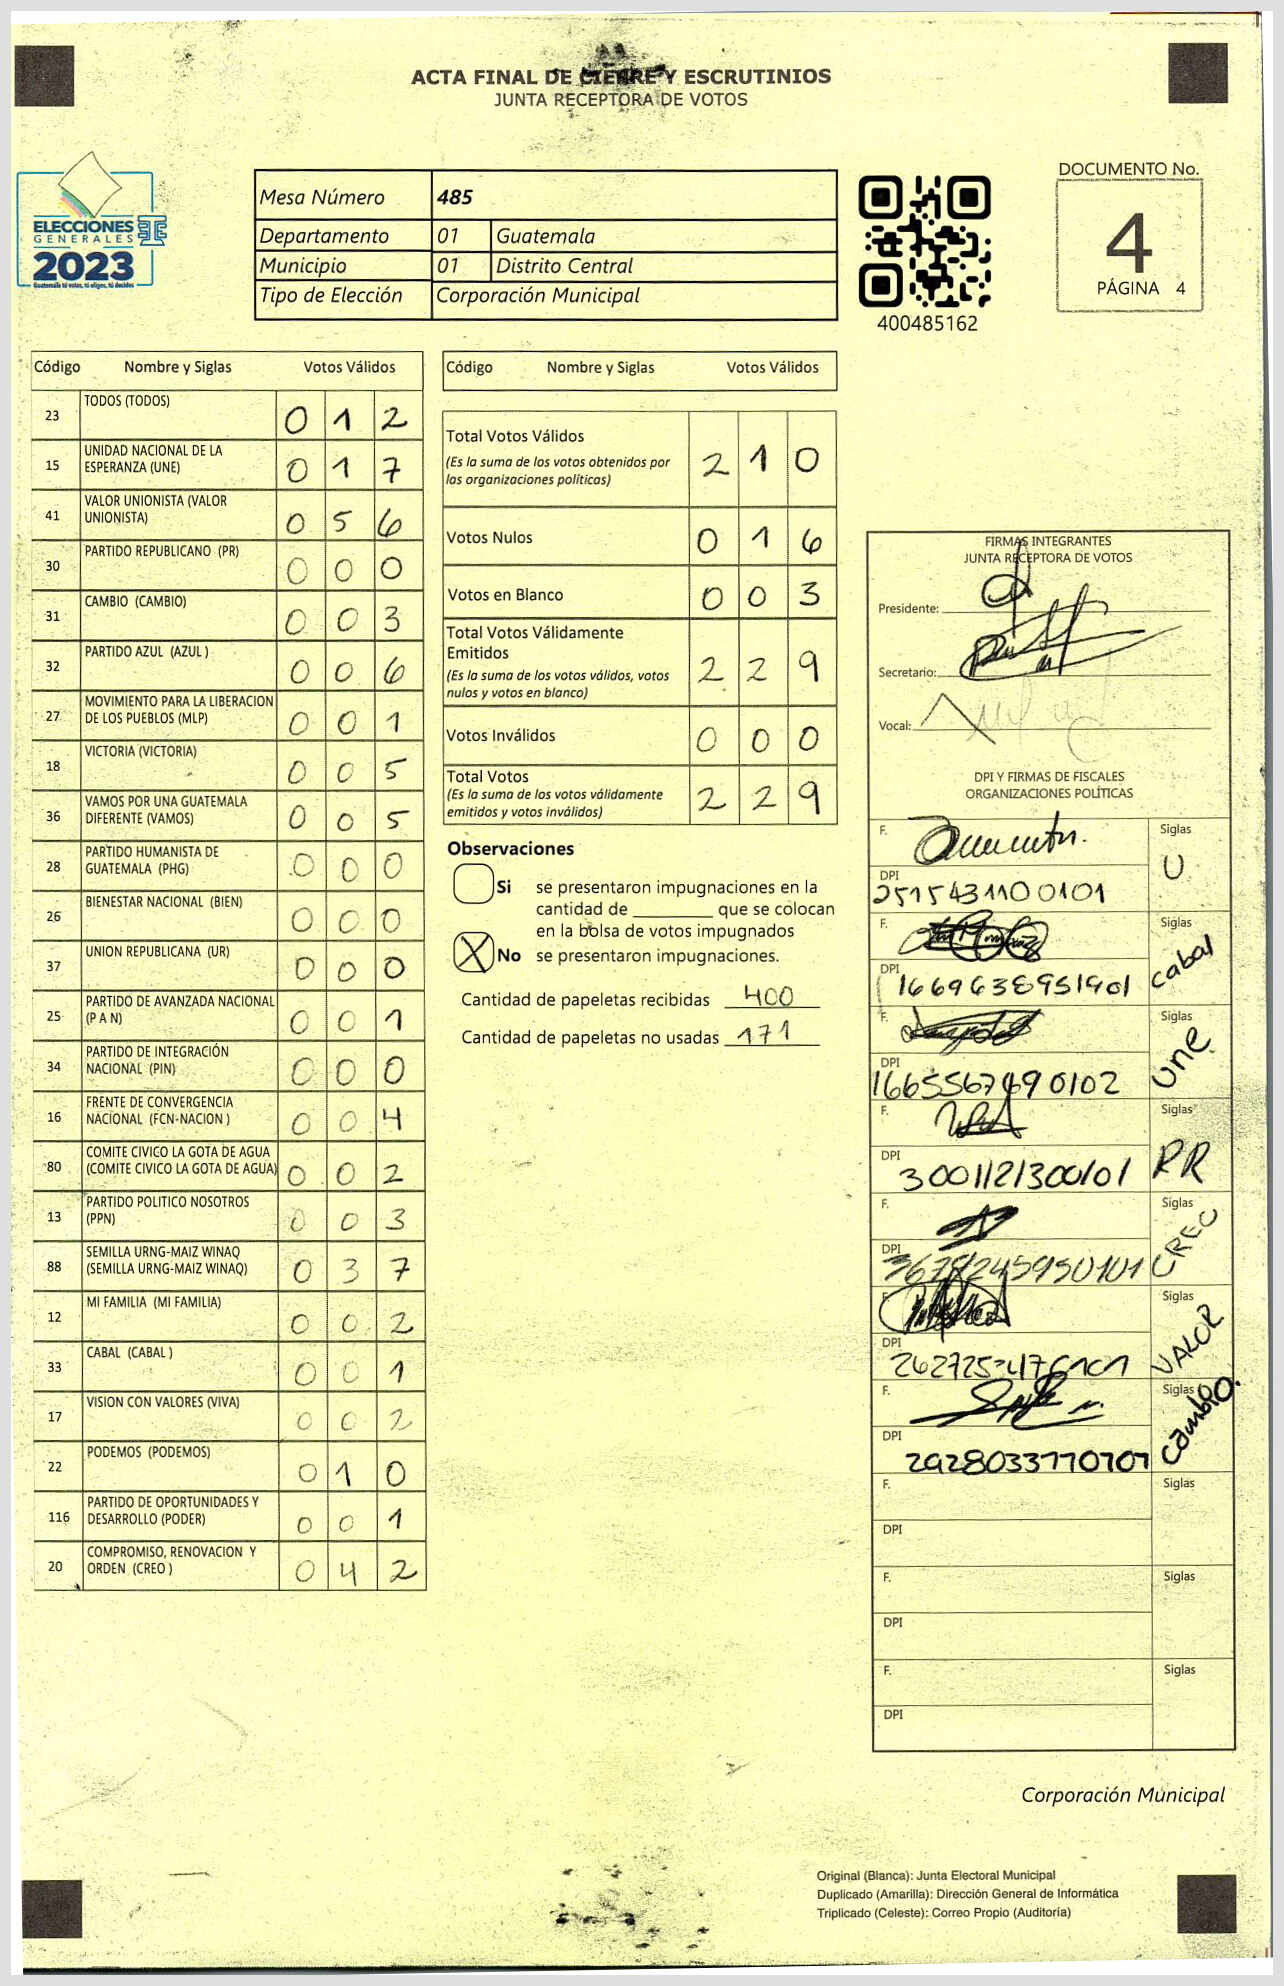 ACTA FINAL DE CIERRE Y ESCRUTINIOS
JUNTA RECEPTORA DE VOTOS
ELECCIONES
GENERALES
2023
Guatemala tú votas, tú eliges, tú decides
Mesa Número 485
Departamento 01 Guatemala
Municipio 01 Distrito Central
Tipo de Elección Corporación Municipal
400485162
DOCUMENTO No.
4
PÁGINA 4
Código Nombre y Siglas Votos Válidos
23 TODOS (TODOS) 0 1 2
15 UNIDAD NACIONAL DE LA
ESPERANZA (UNE) 0 1 7
41 VALOR UNIONISTA (VALOR
UNIONISTA) 0 5 6
30 PARTIDO REPUBLICANO (PR) 0 0 0
31 CAMBIO (CAMBIO) 0 0 3
32 PARTIDO AZUL (AZUL ) 0 0 6
27 MOVIMIENTO PARA LA LIBERACION
DE LOS PUEBLOS (MLP) 0 0 1
18 VICTORIA (VICTORIA) 0 0 5
36 VAMOS POR UNA GUATEMALA
DIFERENTE (VAMOS) 0 0 5
28 PARTIDO HUMANISTA DE
GUATEMALA (PHG) 0 0 0
26 BIENESTAR NACIONAL (BIEN) 0 0 0
37 UNION REPUBLICANA (UR) 0 0 0
25 PARTIDO DE AVANZADA NACIONAL
(P A N) 0 0 1
34 PARTIDO DE INTEGRACIÓN
NACIONAL (PIN) 0 0 0
16 FRENTE DE CONVERGENCIA
NACIONAL (FCN-NACION ) 0 0 4
80 COMITE CIVICO LA GOTA DE AGUA
(COMITE CIVICO LA GOTA DE AGUA) 0 0 2
13 PARTIDO POLITICO NOSOTROS
(PPN) 0 0 3
88 SEMILLA URNG-MAIZ WINAQ
(SEMILLA URNG-MAIZ WINAQ) 0 3 7
12 MI FAMILIA (MI FAMILIA) 0 0 2
33 CABAL (CABAL ) 0 0 1
17 VISION CON VALORES (VIVA) 0 0 2
22 PODEMOS (PODEMOS) 0 1 0
116 PARTIDO DE OPORTUNIDADES Y
DESARROLLO (PODER) 0 0 1
20 COMPROMISO, RENOVACION Y
ORDEN (CREO ) 0 4 2
Código Nombre y Siglas Votos Válidos
Total Votos Válidos 2 1 0
(Es la suma de los votos obtenidos por
las organizaciones políticas)
Votos Nulos 0 1 6
Votos en Blanco 0 0 3
Total Votos Válidamente
Emitidos 2 2 9
(Es la suma de los votos válidos, votos
nulos y votos en blanco)
Votos Inválidos 0 0 0
Total Votos 2 2 9
(Es la suma de los votos válidamente
emitidos y votos inválidos)
Observaciones
Si se presentaron impugnaciones en la
cantidad de ________ que se colocan
en la bolsa de votos impugnados
X No se presentaron impugnaciones.
Cantidad de papeletas recibidas 400
Cantidad de papeletas no usadas 171
FIRMAS INTEGRANTES
JUNTA RECEPTORA DE VOTOS
Presidente:
Secretario:
Vocal:
DPI Y FIRMAS DE FISCALES
ORGANIZACIONES POLÍTICAS
F. Siglas
U
DPI
2515431100101
F. Siglas
cabal
DPI
1669638951901
F. Siglas
une
DPI
F. Siglas
PR
DPI
3001121300101
F. Siglas
CREO
DPI
F. Siglas
VALOR
DPI
F. Siglas
cambio.
DPI
F. Siglas
DPI
F. Siglas
DPI
F. Siglas
DPI
Corporación Municipal
Original (Blanca): Junta Electoral Municipal
Duplicado (Amarilla): Dirección General de Informática
Triplicado (Celeste): Correo Propio (Auditoría)